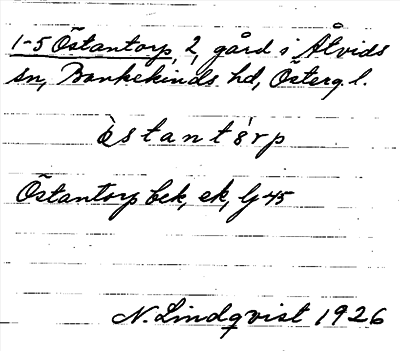 1-5 Östantorp, 2, gård i Åtvids
sn, Bankekinds hd, Österg. l.
östantörp
Östantorp bek, ek, Lj 45
N. Lindqvist 1926